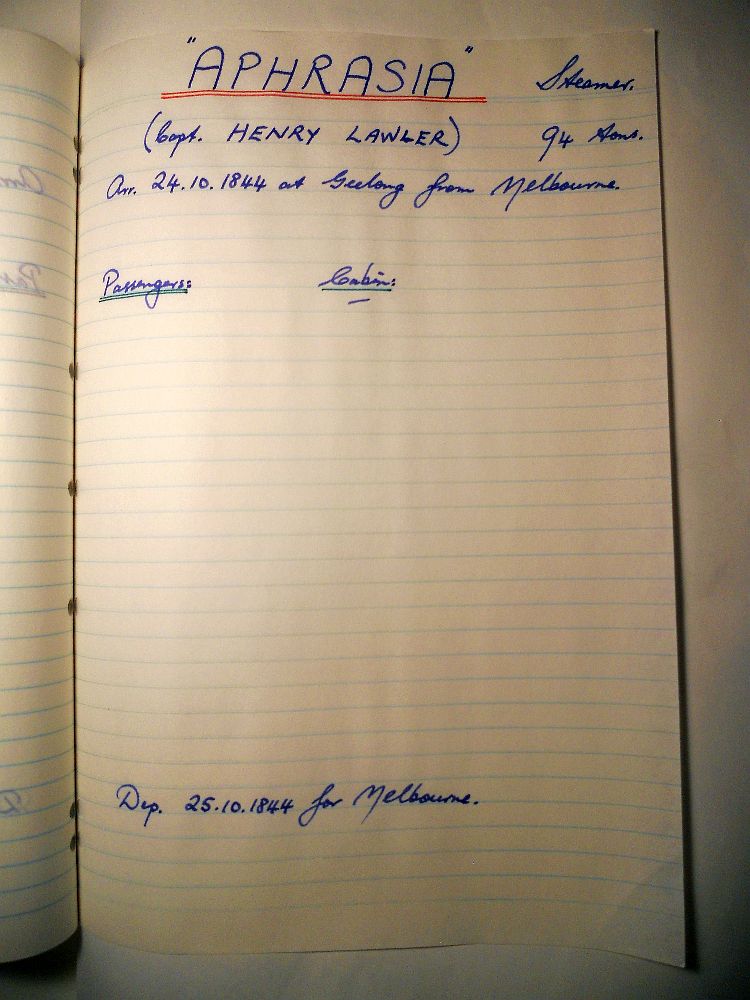 "APHRASIA" Steamer.
(Capt. HENRY LAWLER) 94 tons.
Arr. 24.10.1844 at Geelong from Melbourne.
Passengers: Cabin:
—
Dep. 25.10.1844 for Melbourne.